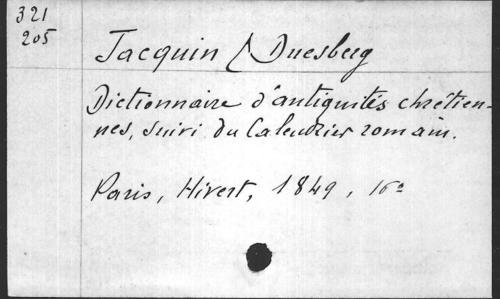 321
205
Jacquin & Duesberg
Dictionnaire d'antiquités chrétien-
nes, suivi du Calendrier romain.
Paris, Hivert, 1849, 16°